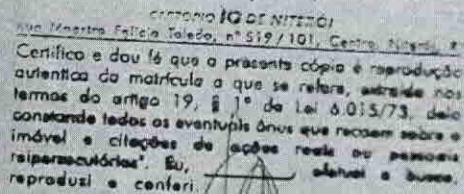 CARTORIO 1G DE NITEROI
Rua Maestro Felicio Toledo, nº 519/101, Centro, Niterói, R
Certifico e dou fé que a presente cópia é reprodução
autentica da matrícula a que se refere, extraída nos
termos do artigo 19, § 1º da Lei 6.015/73, dela
constando todos os eventuais ônus que recaem sobre o
imóvel e citações de ações reais ou pessoais
reipersecutórias". Eu, efetuei a busca,
reproduzi e conferi.